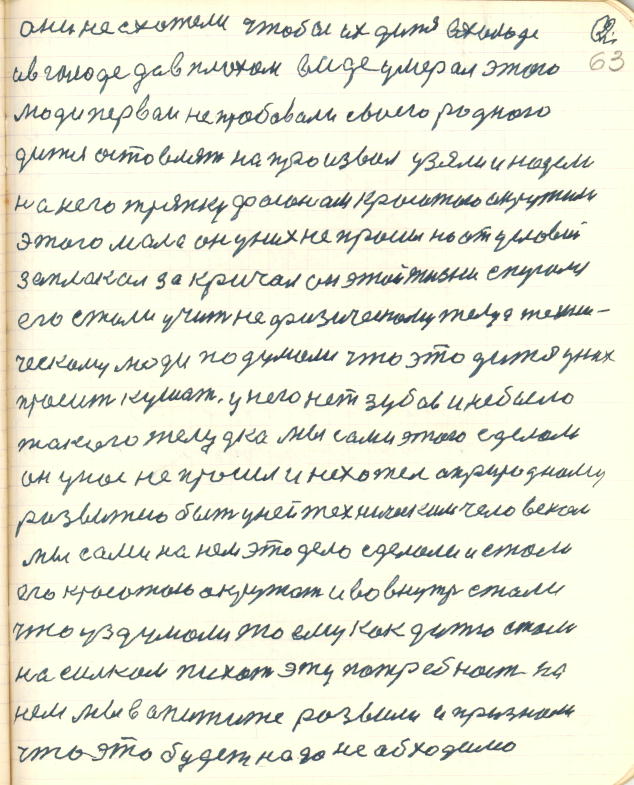 они не схотели чтобы их дитя вхолоде
63
ив голоде да в плохом виде умерал этого
люди первои непробовали своего родного
дитя оставлят на произвал узяли и надели
на него тряпку фасонам красотою окружили
этого мала он у них не просил но от условий
заплакал закричал он этой жизни спугали
его стали учит не физическому телу а техни-
ческому люди подумали что это дитя у них
просит кушат. у него нет зубов и небыло
такого желудка мы сами этого сделали
он у нас не просил и нехотел
развитию быт у ней техническим человеком
мы сами на нем это дело сделали и стали
его красотою окружат и во внутр стали
что уздумали то ему как дитю стали
на силком пихат эту потребност на
нем мы в апетите развили и признали
что это будет надо необходимо